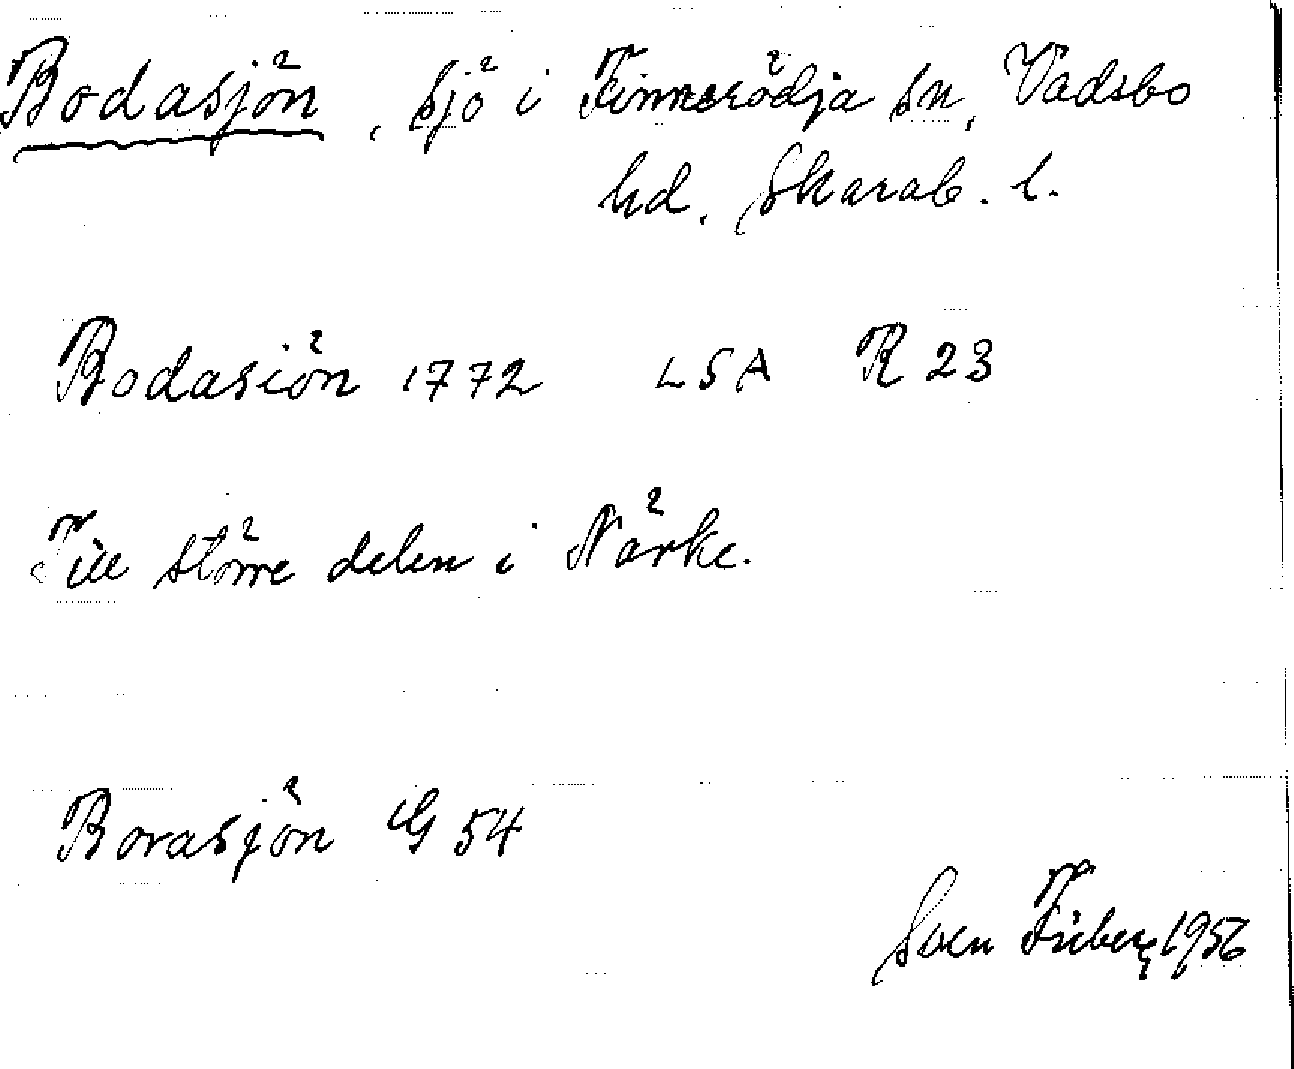 Bodasjön, sjö i Finnerödja sn, Vadsbo
hd, Skarab. l.
Bodasiön 1772 LSA R 23
Till större delen i Närke.
Borasjön G 54
Sven Friberg 1956